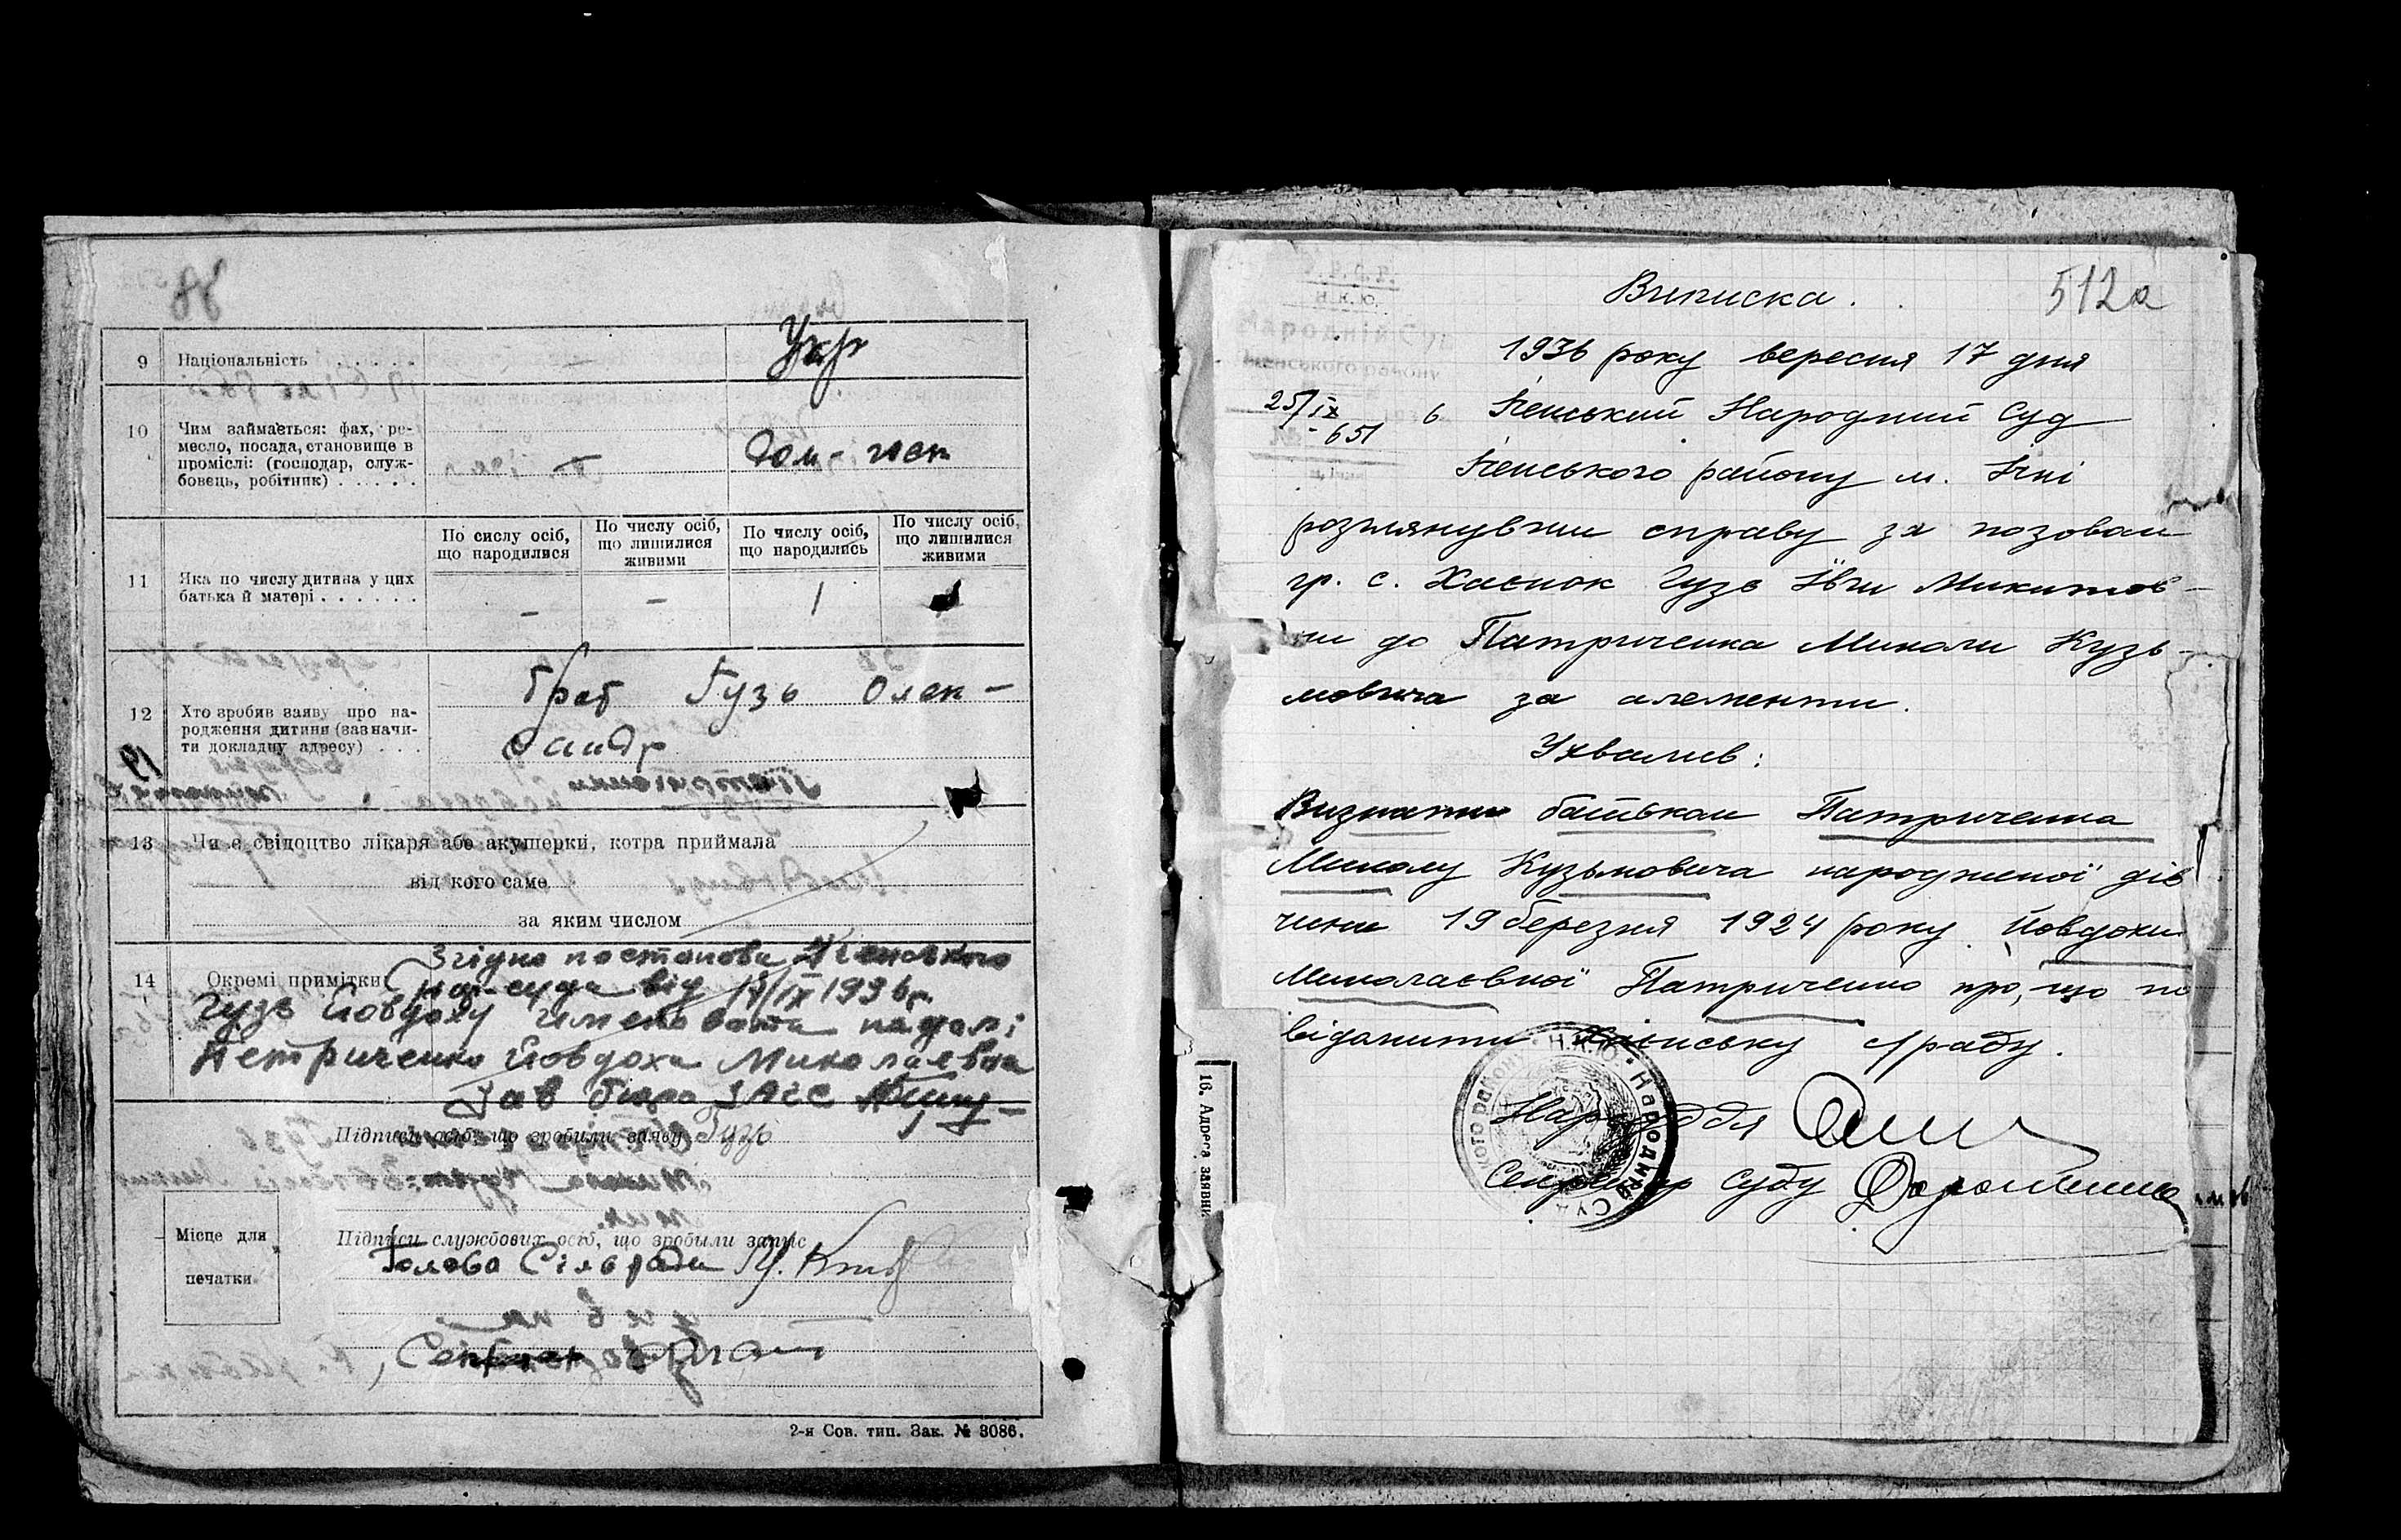 88
9 Національність . . . . . .
Укр
10 Чим займається: фах, ре-
месло, посада, становище в
проміслі: (господар, служ-
бовець, робітник) . . . . .
Дом-госп
По сислу осіб,
що народилися
По числу осіб,
що лишилися
живими
По числу осіб,
що народились
По числу осіб,
що лишилися
живими
11 Яка по числу дитина у цих
батька й матері . . . . . .
- - 1
12 Хто зробив заяву про на-
родження дитини (зазначи-
ти докладну адресу) . . .
брат Гузь Олек-
сандр
13 Чи є свідоцтво лікаря або акушерки, котра приймала
від кого саме
за яким числом
14 Окремі примітки
Згідно постанови Іченського
нар-суда від 17/IX 1936р.
Гузь Йовдоху именовати надалі
Петриченко Йовдоха Миколаевна
Зав бюро ЗАГС
Підписи осіб, що зробили заяву Гузь
Місце для
печатки
Підписи службових осіб, що зробыли запис
Голова Сільради
Секретар
2-я Сов. тип. Зак. № 3086.
512а
Н.К.Ю.
Народній Суд
Іченського району
Виписка.
1936 року вересня 17 дня
25/IX 6 Іченський Народний Суд
-651
Іченського району м. Ічні
розглянувши справу за позовом
гр. с. Хаєнок Гузь Ївги Микитов-
ни до Патриченка Миколи Кузь-
мовича за алементи.
Ухвалив:
Визнати батьком Патриченка
Миколу Кузьмовича народженої дів
чини 19 березня 1924 року Йовдохи
Миколаєвної Патриченко про, що по
відомити с/раду.
Нарсуддя
Секретар Суду
Н.К.Ю. Народний Суд
16. Адреса заявни